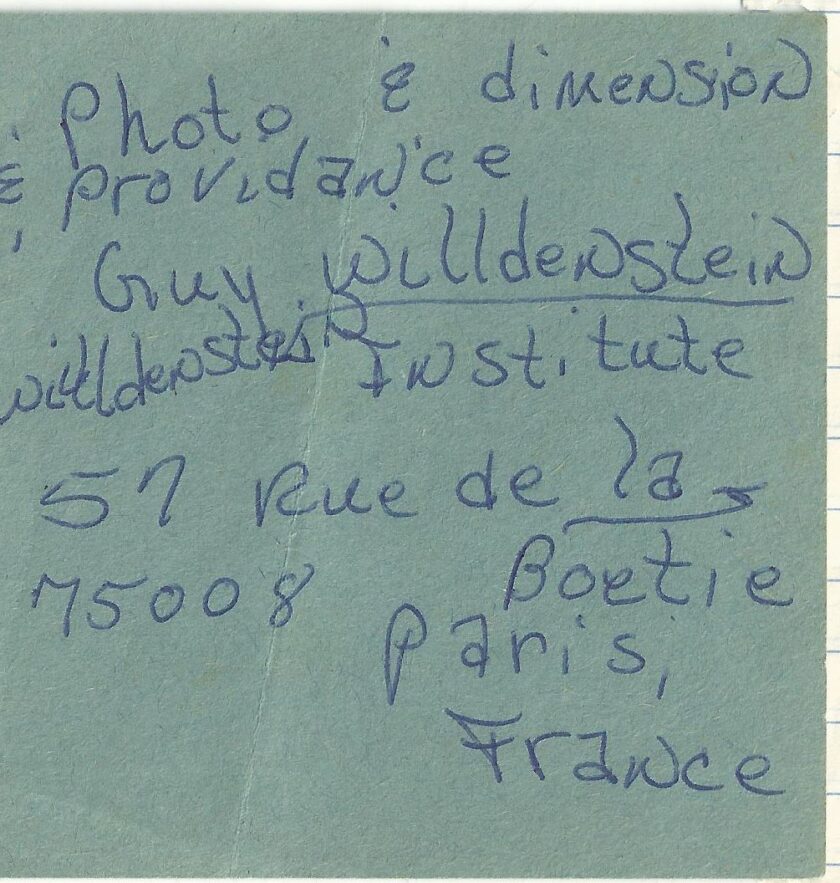 Photo, & dimension
& Providance
Guy Willdenstein
willdenstein Institute
57 Rue de la
75008 Boetie
Paris,
France